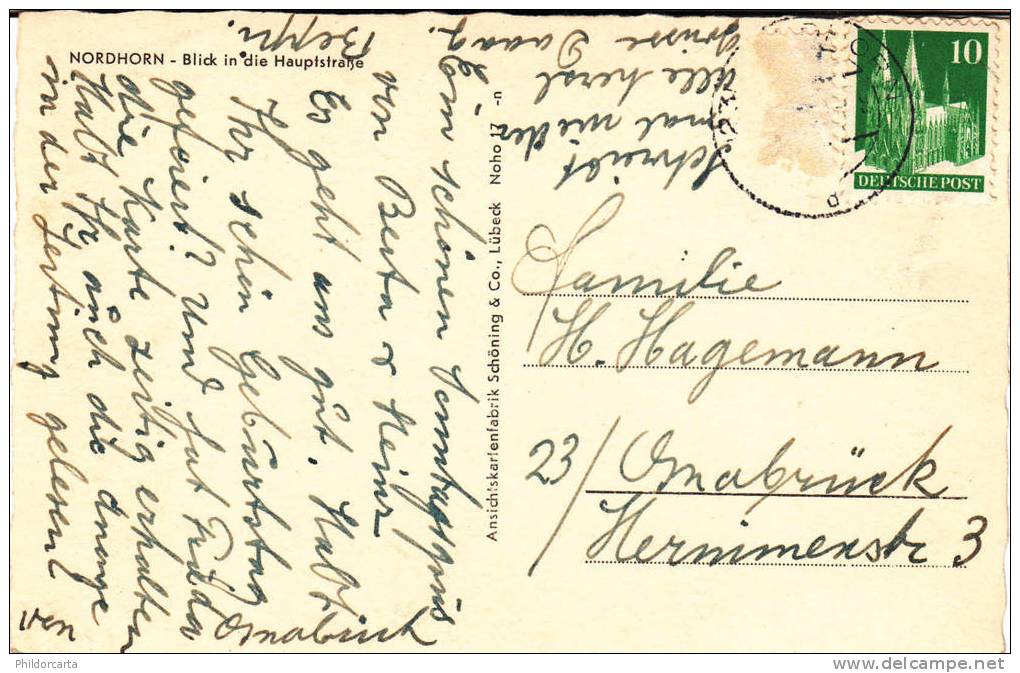 NORDHORN - Blick in die Hauptstraße
Ein schönen Sonntagsgruß
von Berta & Heinz
Es geht uns gut. Habt
Ihr schön Geburtstag
gefeiert? Und hat Frieda
die Karte zeitig erhalten
Habt Ihr auch die Anonge
in der Zeitung gelesen?
von
Osnabrück
Schreibt
mal wieder
alle herzl
Grüsse
Beppi.
Ansichtskartenfabrik Schöning & Co., Lübeck Noho 17 -n
10
DEUTSCHE POST
Familie
H. Hagemann
23/ Osnabrück
Herminenstr 3
Phildorcarta
delcampe.net